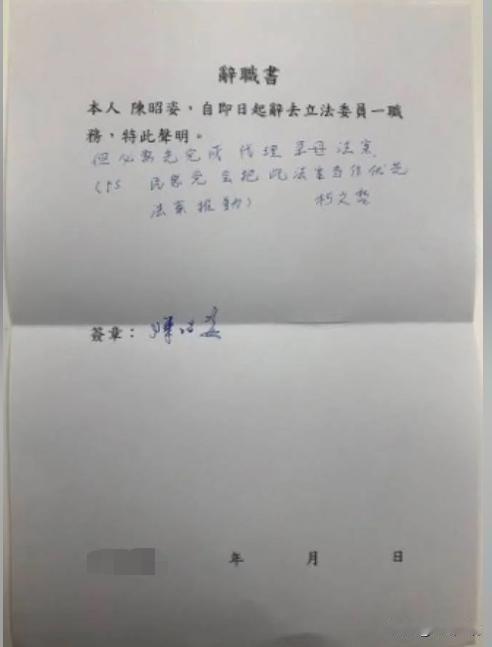 辭職書
本人 陳昭姿，自即日起辭去立法委員一職
務，特此聲明。
但必需先完成 代理孕母法案
(PS 民眾黨會把此法案當作優先
法案推動) 柯文哲
簽章： 陳昭姿
年 月 日